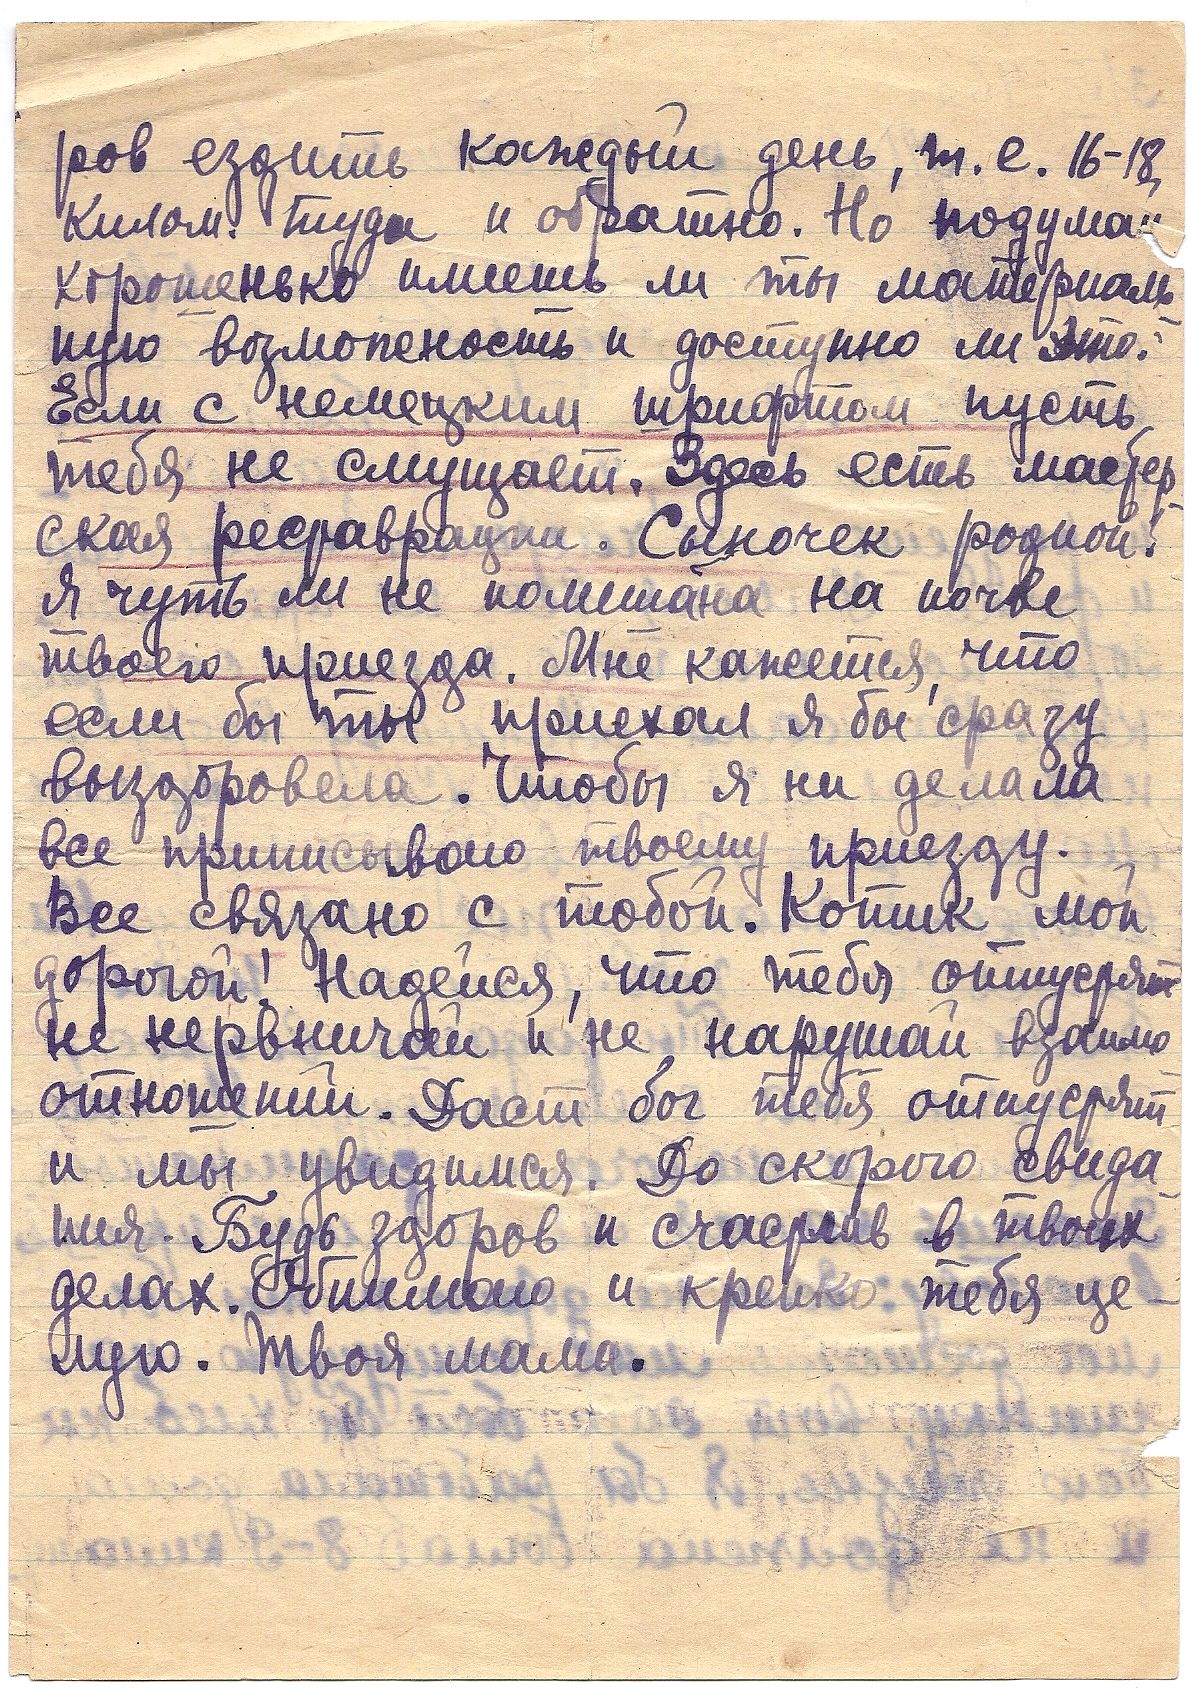 ров ездить каждый день, т.е. 16-18
килом. туда и обратно. Но подумай
хорошенько имеешь ли ты материаль
ную возможеность и доступно ли это.
Если с немецким шрифтом пусть
тебя не смущает. Здесь есть мастер-
ская реставрации. Сыночек родной!
Я чуть ли не помешана на почве
твоего приезда. Мне кажется, что
если бы ты приехал я бы сразу
выздоровела. Чтобы я ни делала
все приписываю твоему приезду.
Все связано с тобой. Котик мой
дорогой! Надейся, что тебя отпустят
не нервничай и не нарушай взаимо
отношений. Даст бог тебя отпустят
и мы увидимся. До скорого свида
ния. Будь здоров и счастлив в твоих
делах. Обнимаю и крепко тебя це-
лую. Твоя мама.